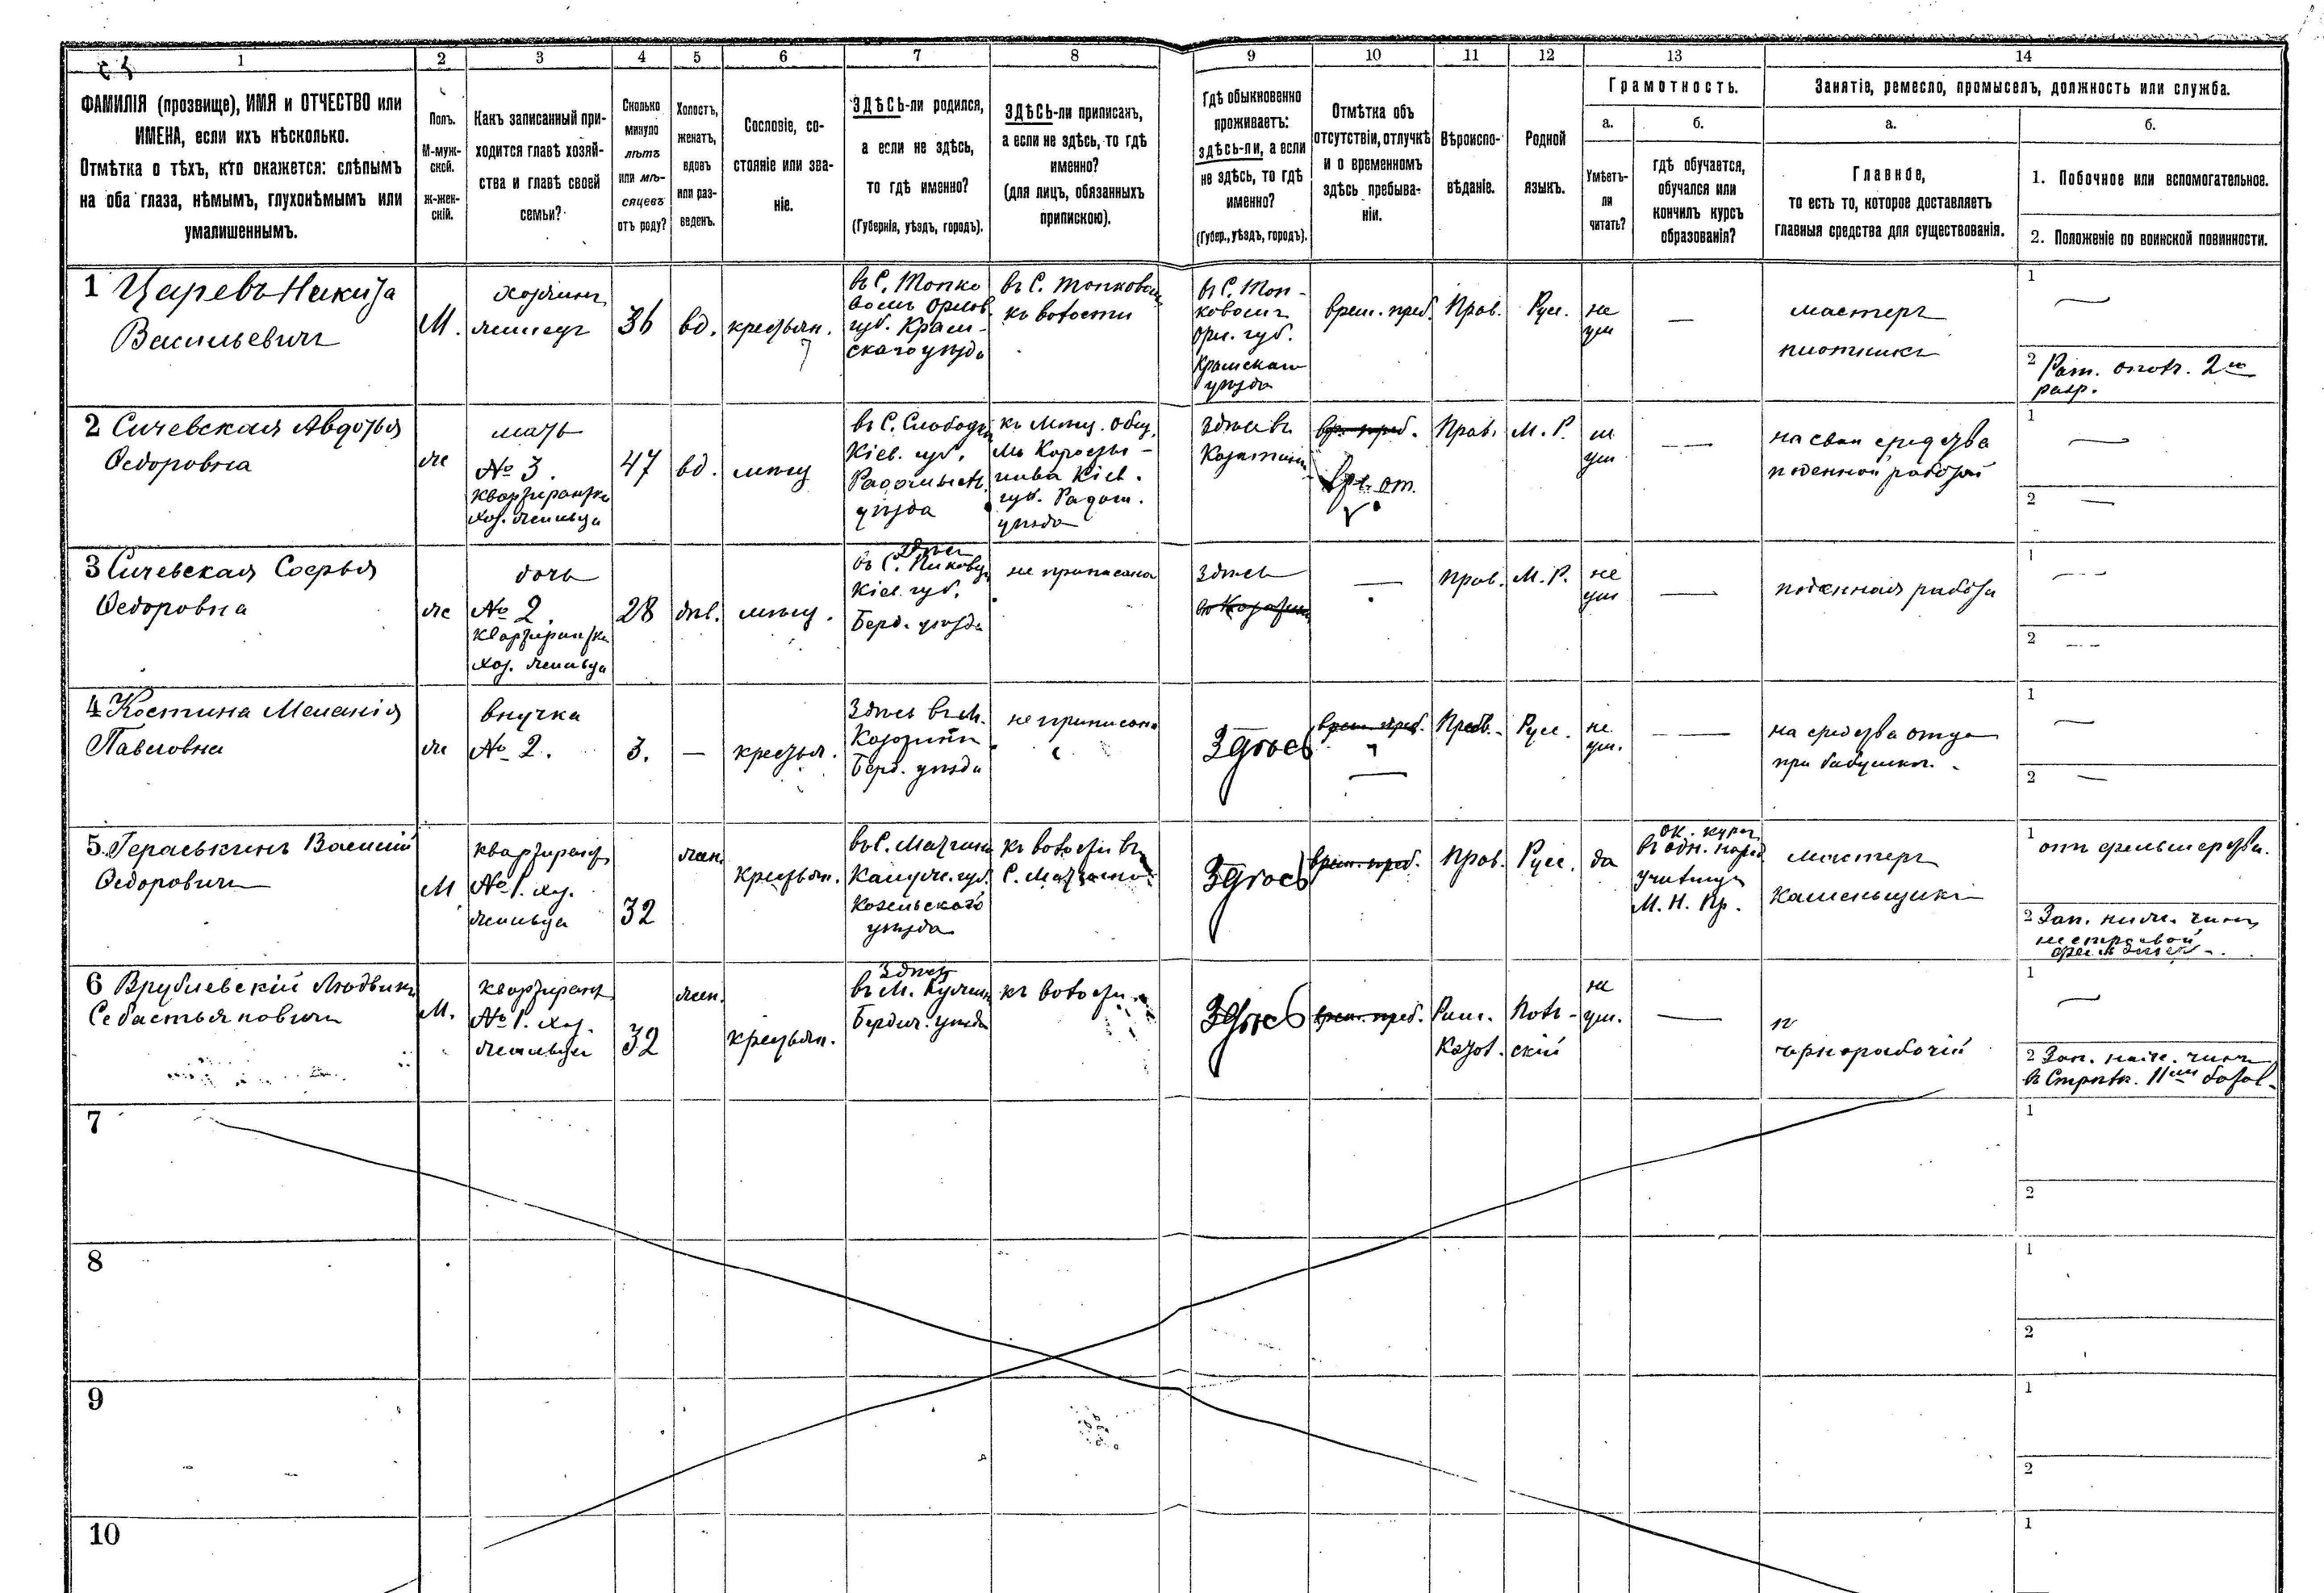 1 2 3 4 5 6 7 8 9 10 11 12 13 14
ФАМИЛІЯ (прозвище), ИМЯ и ОТЧЕСТВО или
ИМЕНА, если ихъ нѣсколько.
Отмѣтка о тѣхъ, кто окажется: слѣпымъ
на оба глаза, нѣмымъ, глухонѣмымъ или
умалишеннымъ.
Полъ.
М-муж-
ской.
ж-жен-
скій.
Какъ записанный при-
ходится главѣ хозяй-
ства и главѣ своей
семьи?
Сколько
минуло
лѣтъ
или мѣ-
сяцевъ
отъ роду?
Холостъ,
женатъ,
вдовъ
или раз-
веденъ.
Сословіе, со-
стояніе или зва-
ніе.
ЗДѢСЬ-ли родился,
а если не здѣсь,
то гдѣ именно?
(Губернія, уѣздъ, городъ).
ЗДѢСЬ-ли приписанъ,
а если не здѣсь, то гдѣ
именно?
(для лицъ, обязанныхъ
припискою).
Гдѣ обыкновенно
проживаетъ:
здѣсь-ли, а если
не здѣсь, то гдѣ
именно?
(Губер., уѣздъ, городъ).
Отмѣтка объ
отсутствіи, отлучкѣ
и о временномъ
здѣсь пребыва-
ніи.
Вѣроиспо-
вѣданіе.
Родной
языкъ.
Грамотность.
а.
Умѣетъ-
ли
читать?
б.
гдѣ обучается,
обучался или
кончилъ курсъ
образованія?
Занятіе, ремесло, промыселъ, должность или служба.
а.
Главное,
то есть то, которое доставляетъ
главныя средства для существованія.
б.
1. Побочное или вспомогательное.
2. Положеніе по воинской повинности.
1 Царевъ Никита
Васильевичъ
М.
хозяинъ
жилецъ
36
вд.
крестьян.
въ С. Топко
вомъ Орлов.
губ. Кром-
скаго уѣзда
въ С. Топковом
къ волости
въ С. Топ-
ковомъ
Орл. губ.
Кромскаго
уѣзда
врем. преб.
Прав.
Рус.
не
ум
—
мастеръ
плотникъ
1 —
2 Рат. опол. 2го
разр.
2 Сичевская Авдотья
Ѳедоровна
ж
мать
№ 3.
квартирантка
хоз. жильца
47
вд.
мѣщ
въ С. Слободѣ
Кіев. губ.
Радомысл.
уѣзда
къ мѣщ. общ.
Кіев.
губ. Радом.
уѣзда
здѣсь въ
Козатинѣ
вр. преб.
вр. от.
Прав.
М. Р.
не
ум
—
на свои средства
поденной работой
1 —
2 —
3 Сичевская Софья
Ѳедоровна
ж
дочь
№ 2.
квартирантка
хоз. жильца
28
дѣв.
мѣщ.
здѣсь
въ С. Пиковцѣ
Кіев. губ.
Берд. уѣзда
не приписана
здѣсь
въ Козатинѣ
—
прав.
М. Р.
не
ум
—
поденная работа
1 —
2 —
4 Костина Меланія
Павловна
ж
внучка
№ 2.
3.
—
крестьян.
Здѣсь въ М.
Козатинѣ
Берд. уѣзда
не приписана
Здѣсь
врем. преб.
—
Прав.
Русс.
не
ум.
—
на средства отца
при бабушкѣ.
1 —
2 —
5 Гераськинъ Василій
Ѳедоровичъ
М
квартирант
№ 1. хоз.
жильца
32
жен.
крестьян.
Калужс. губ.
Козельскаго
уѣзда
къ волости въ
Здѣсь
врем. преб.
Прав.
Русс.
да
ок. курсъ
въ одн. народ
училищѣ
М. Н. Пр.
мастеръ
каменьщикъ
1 отъ фельшерства.
2 Зап. нижн. чинъ
нестроевой
6 Врублевскій Людвикъ
Себастьяновичъ
М.
квартирант
№ 1. хоз.
жильца
32
жен.
крестьян.
Здѣсь
Бердич. уѣзда
къ волости
Здѣсь
врем. преб.
Рим.
Катол.
Поль-
скій
не
ум.
—
чернорабочій
1 —
2 Зап. ниж. чинъ
въ Стрѣлк. 11мъ батал.
7
1
2
8
1
2
9
1
2
10
1